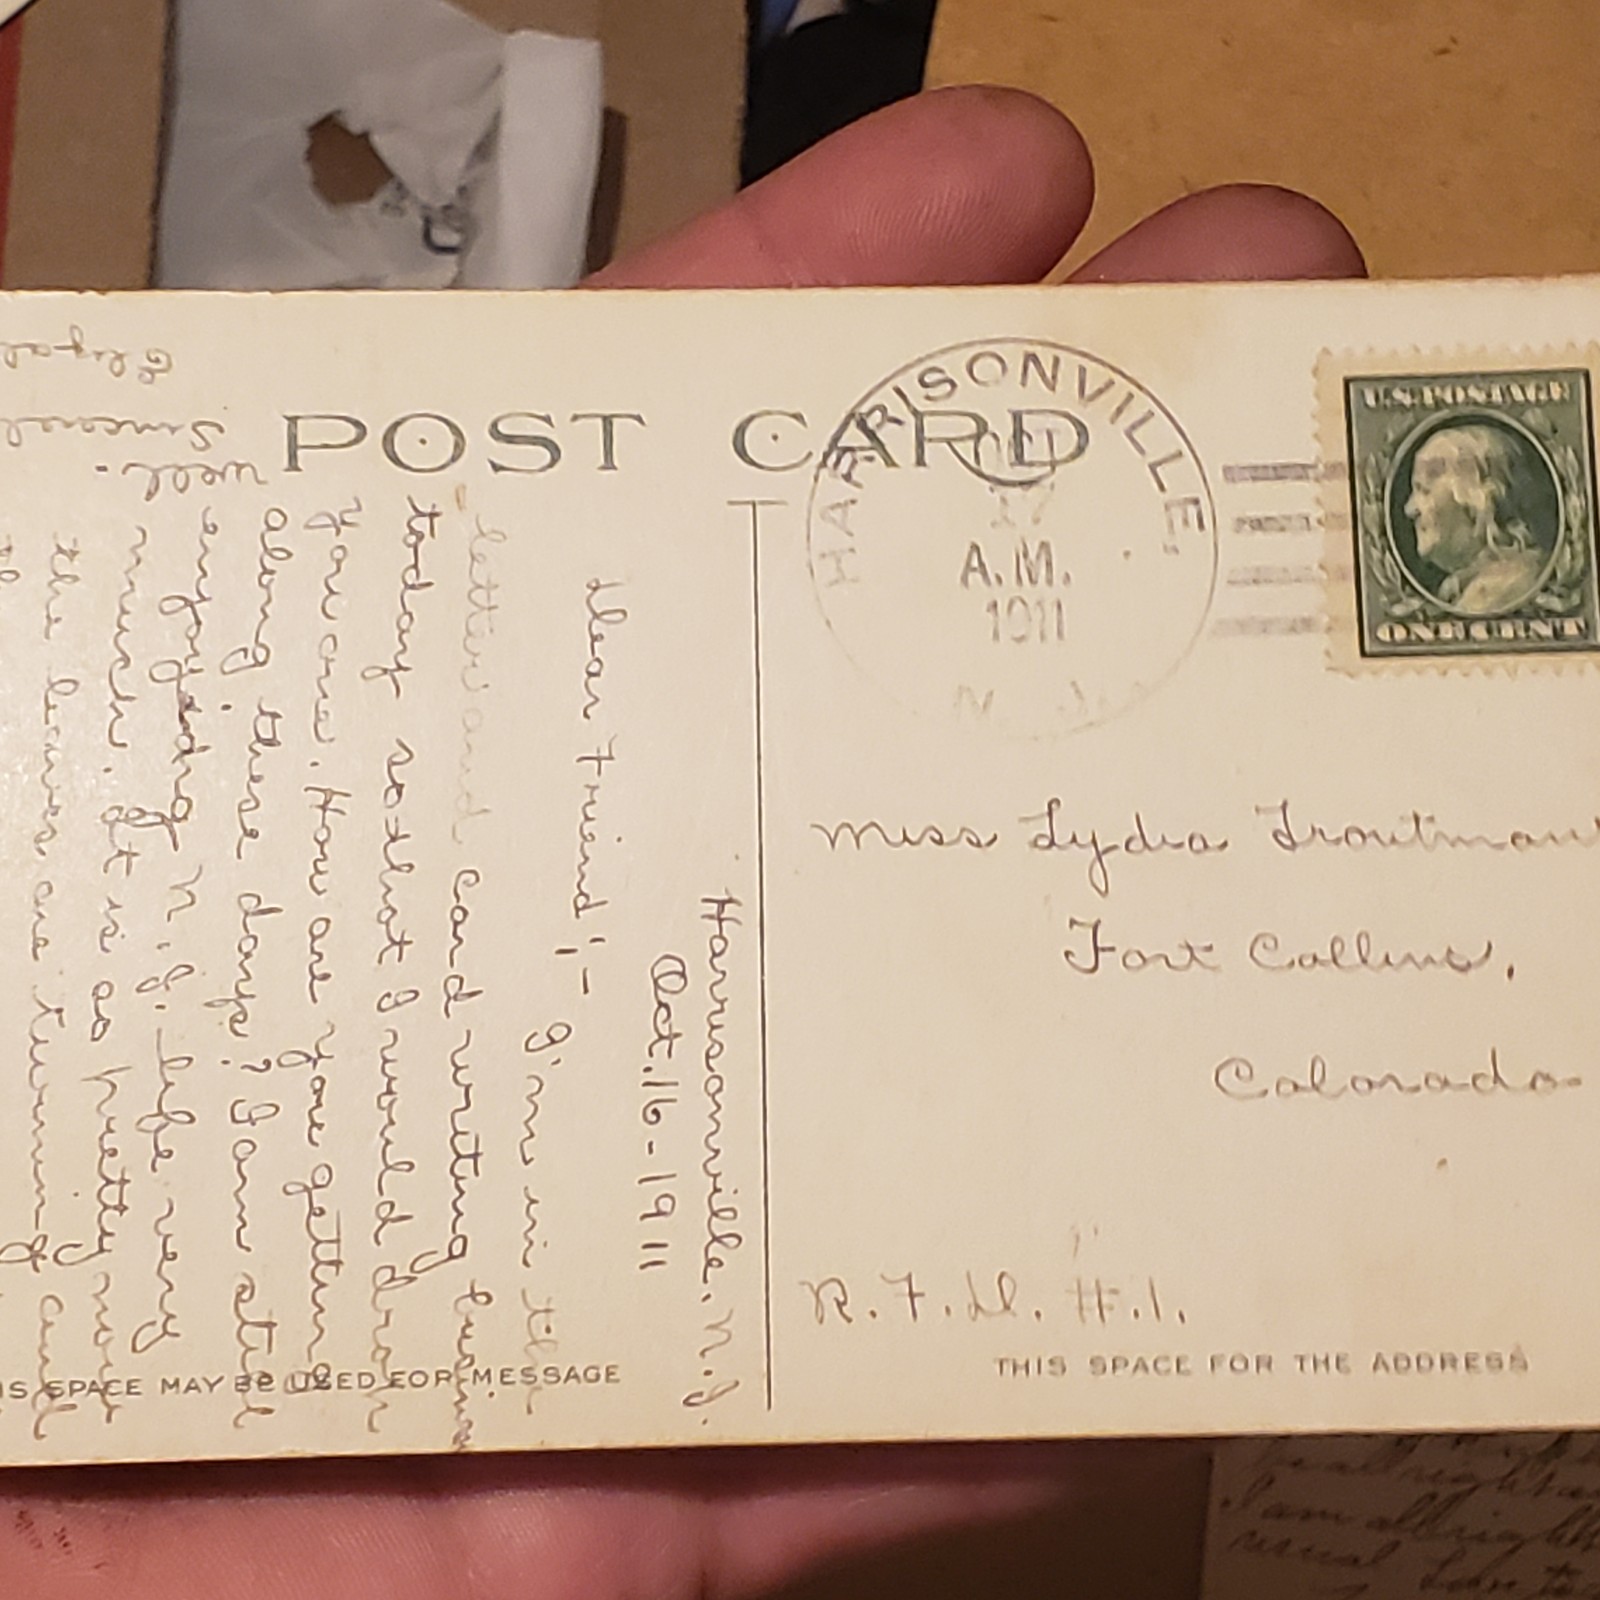 POST CARD
HARRISONVILLE,
OCT
17
A.M.
1911
N. J.
U.S. POSTAGE
ONE CENT
Harrisonville. N. J.
Oct. 16 - 1911
Dear Friend; -
I'm in the
letter and card writing business
today so that I would drop
you one. How are you getting
along these days? I am still
enjoying N. J. life very
much. It is so pretty now
the leaves are turning and
well.
Miss Lydia Troutman
Fort Collins,
Colorado
R. F. D. #. 1.
IS SPACE MAY BE USED FOR MESSAGE
THIS SPACE FOR THE ADDRESS
I am allright